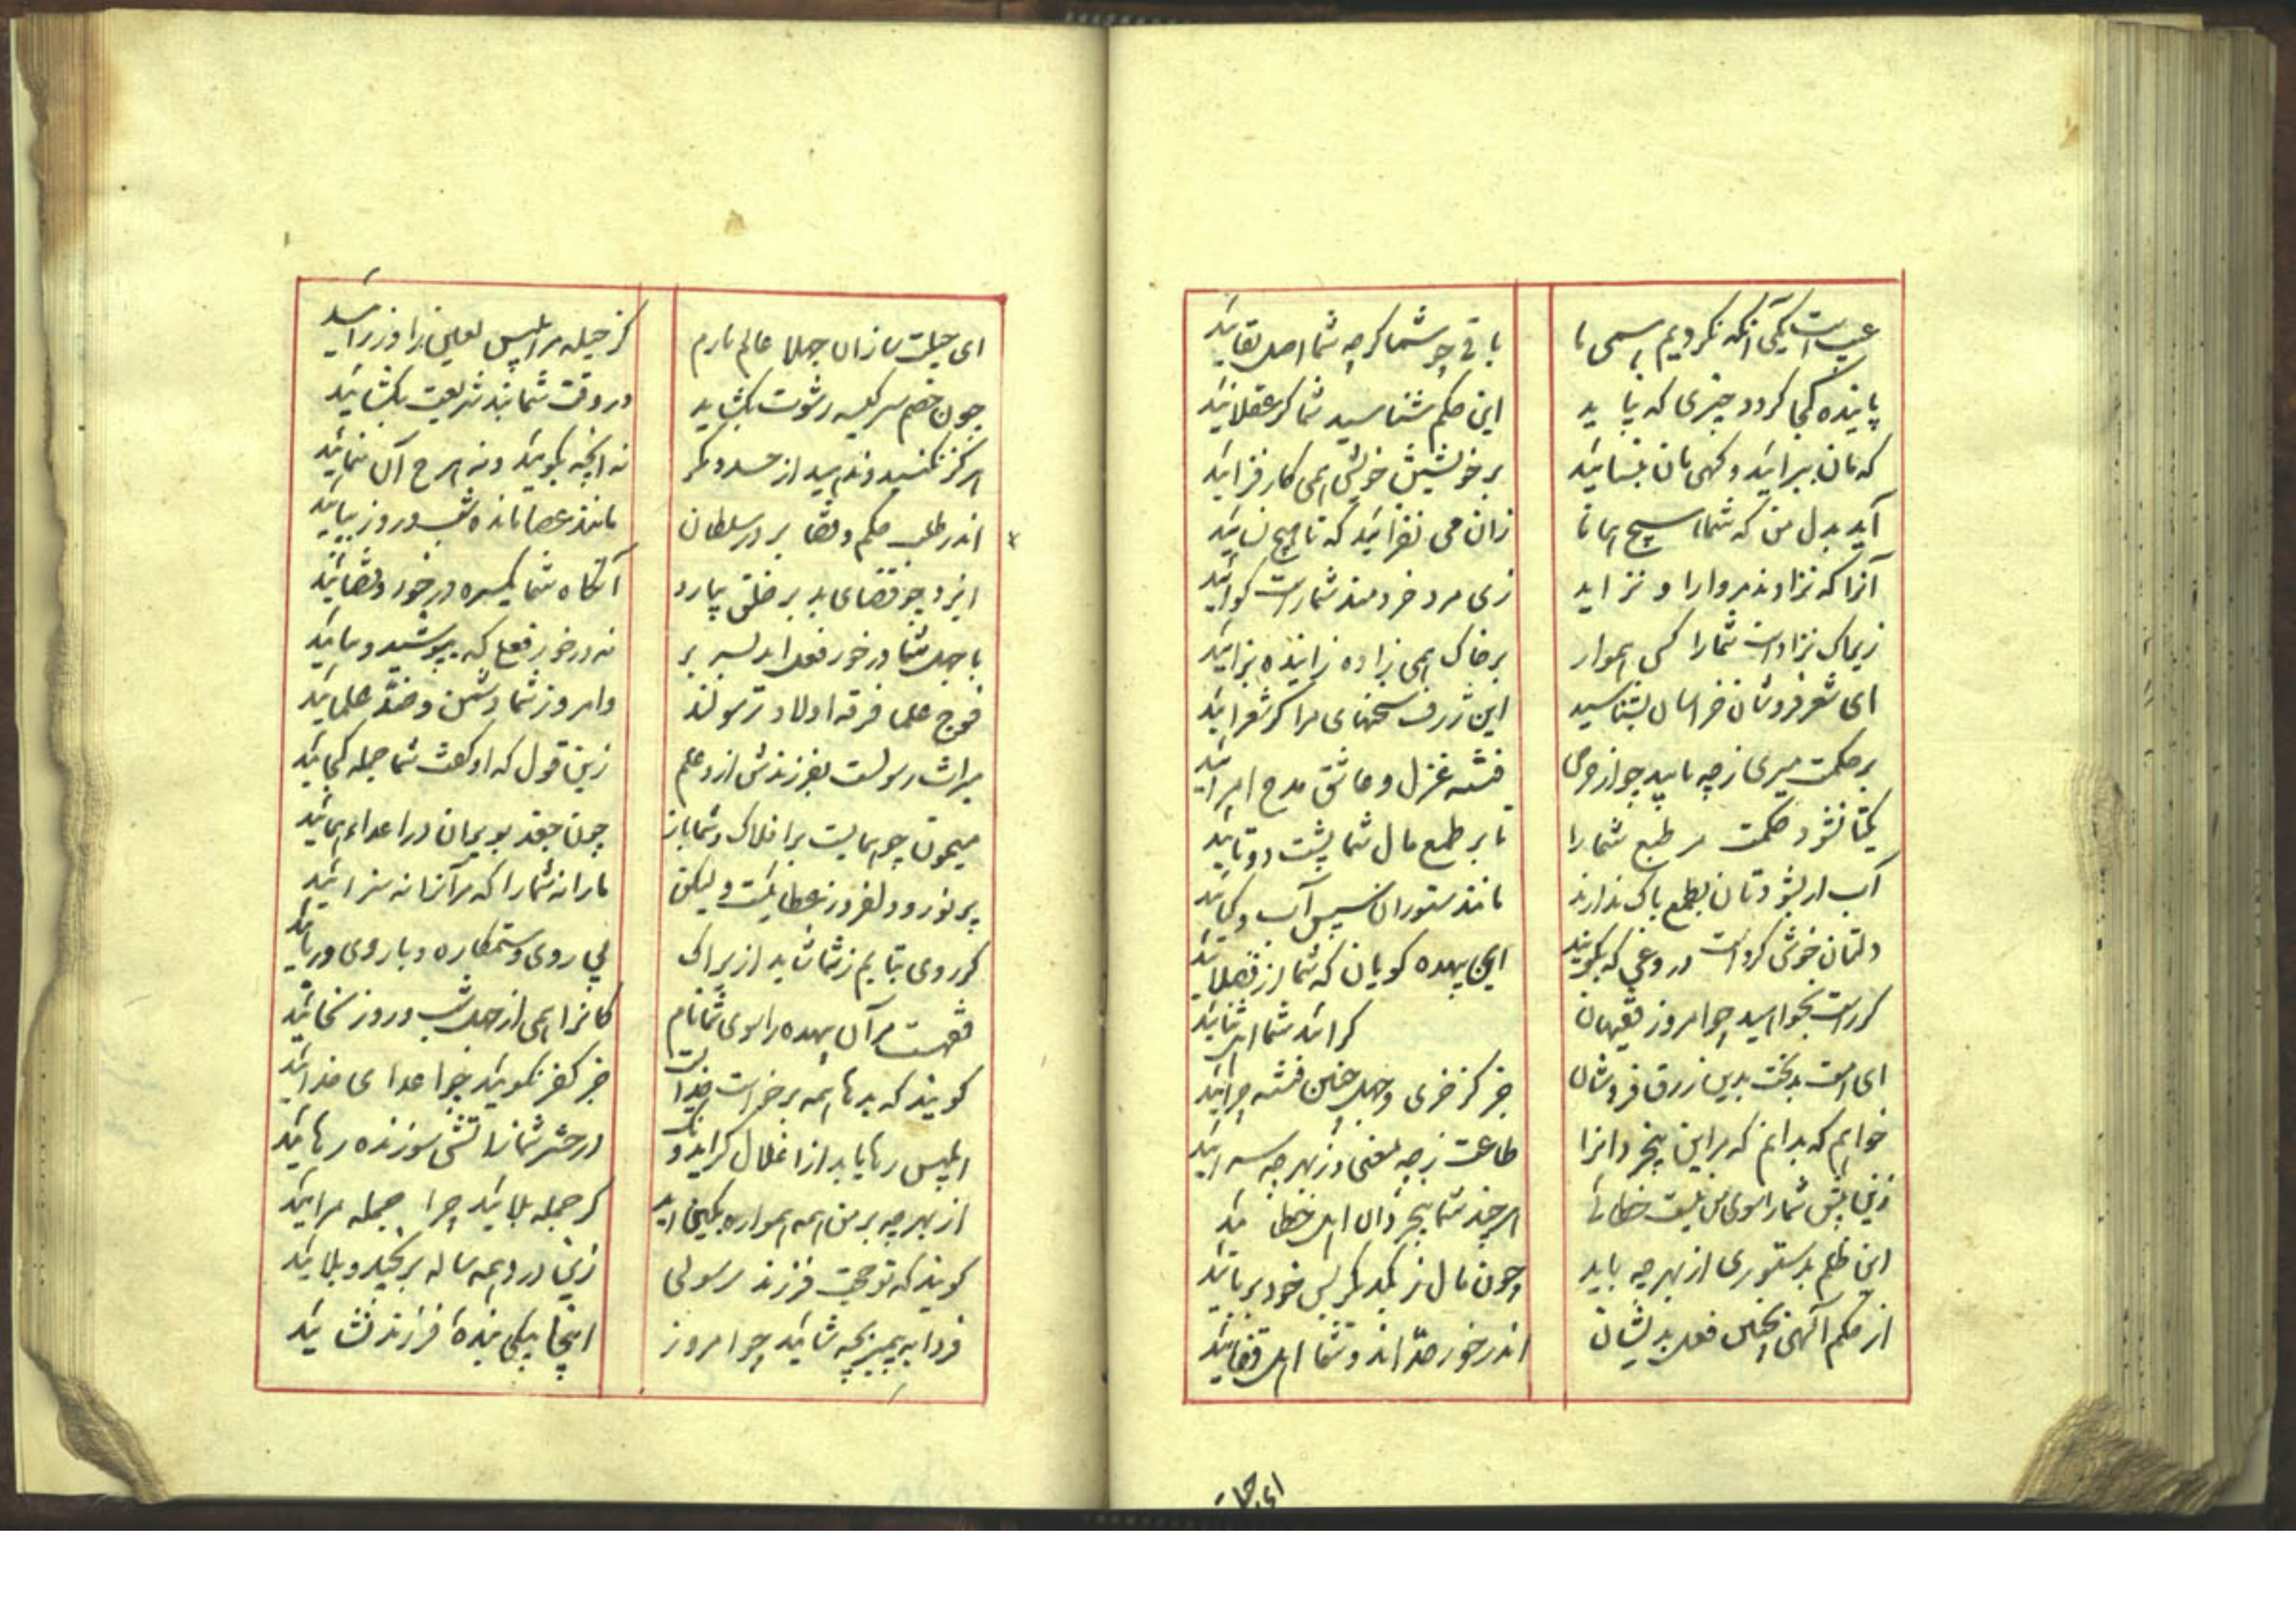 عیبست یکی آنکه نکردیم همی ما
باقی چو شما گرچه شما اصل بقائید
پاینده کجا گردد چیزی که نپاید
این حکم شناسید شما گر عقلائید
که تان بپرایند و گهی تان بفسایند
بر خویشتن خویش همی کار فزائید
آید بدل من که شما هیچ همانا
زان می نفزائید که تا هیچ نسائید
آنرا که نزادند مر او را و نزاید
زی مرد خردمند شما راست گوائید
زیراک نزادست شما را کس هموار
بر خاک همی زاده زاینده بزائید
ای شعر فروشان خراسان بشناسید
این ژرف سخنهای مرا گر شعرائید
بر حکمت میری ز چه یابید چو از حرص
فتنه غزل و عاشق مدح امرائید
یکتا نشود حکمت مر طبع شما را
تا بر طمع مال شما پشت دوتائید
آب ار بشودتان بطمع باک ندارند
مانند ستوران سپس آب و گیائید
دلتان خوش کردست دروغی که بگویند
این بیهده گویان که شما از فضلائید
گر راست بخواهید چو امروز فقیهان
گرائید شما اهل ثنائید
ای امت بدبخت بدین زرق فروشان
جز کز خری و جهل چنین فتنه چرائید
خواهم که بدانم که مر این بیخردانرا
طاعت ز چه معنی و ز بهر چه سرائید
زین بیش شما را سوی من نیست خطائی
هر چند شما بیخردان اهل خطائید
این ظلم بدستوری از بهر چه باید
چون مال ز یکدیگر بس خود بربائید
از حکم الهی بچنین فعل بد ایشان
اندر خور حدّاند و شما اهل قفائید
ای حیلت
ای حیلت سازان جهلا عالم نامم
کز حیله مر ابلیس لعین را وزرائید
چون خصم سر کیسه رشوت بگشاید
در وقت شما بند شریعت بگشائید
هرگز نکنید و ندهید از حسد و مکر
نه آنچه بگوئید و نه هرچ آن بنمائید
اندر طلب حکم و قضا بر در سلطان
مانند عصا مانده شب و روز بپائید
ایزد چو قضای بد بر خلق ببارد
آنگاه شما یکسره در خورد قضائید
با جهل شما در خور نعل اید بسر بر
نه در خور نعلی که بپوشید و بیائید
فوج علما فرقه اولاد رسولند
و امروز شما دشمن و ضدّ علمائید
میراث رسولست بفرزندش ازو علم
زین قول که او گفت شما جمله کجائید
میمون چو همایست بر افلاک و شما باز
چون جغد بویران در اعداء همائید
پر نور و دلفروز عطائیست ولیکن
ما را نه شما را که مر آنرا نه سزائید
گر روی بتابم ز شما شاید ازیراک
بی روی و ستمکاره و با روی و ریائید
فقهست مر آن بیهده را سوی شما نام
کانرا همی از جهل شب و روز بخائید
گویند که بدها همه بر خواست خدایست
جز کفر نگوئید چو اعدای خدائید
ابلیس رها یابد از اغلال گر ایدونک
در حشر شما ز آتش سوزنده رهائید
از بهر چه بر من همه همواره بکین اید
گر جمله بلائید چرا جمله مرائید
گویند که تو حجت فرزند رسولی
زین درد همه ساله بزنجیر و بلائید
فردا به پیمبر بچه شائید چو امروز
اینجا بیکی بنده فرزند نشائید